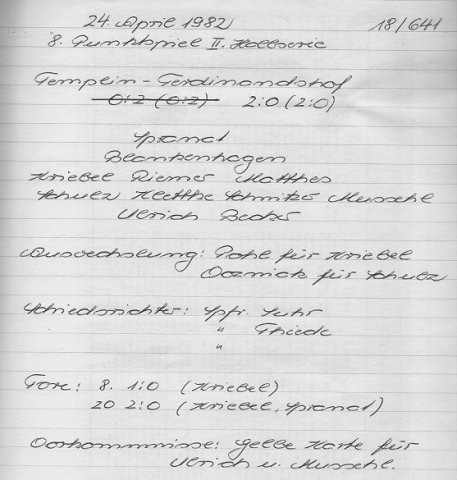 24. April 1982 18/641
8. Punktspiel II. Halbserie
Templin - Ferdinandshof
0:2 (0:2) 2:0 (2:0)
Spranat
Blankenhagen
Kriebel Riemer Matthes
Schulz Kletthe Schnitzer Muschel
Ulrich Becker
Auswechslung: Pohl für Kriebel
für Schulz
Schiedsrichter: Spfr. Suhr
" Thiede
"
Tore: 8. 1:0 (Kriebel)
20 2:0 (Kriebel, Spranat)
Vorkommnisse: gelbe Karte für
Ulrich u. Muschel.